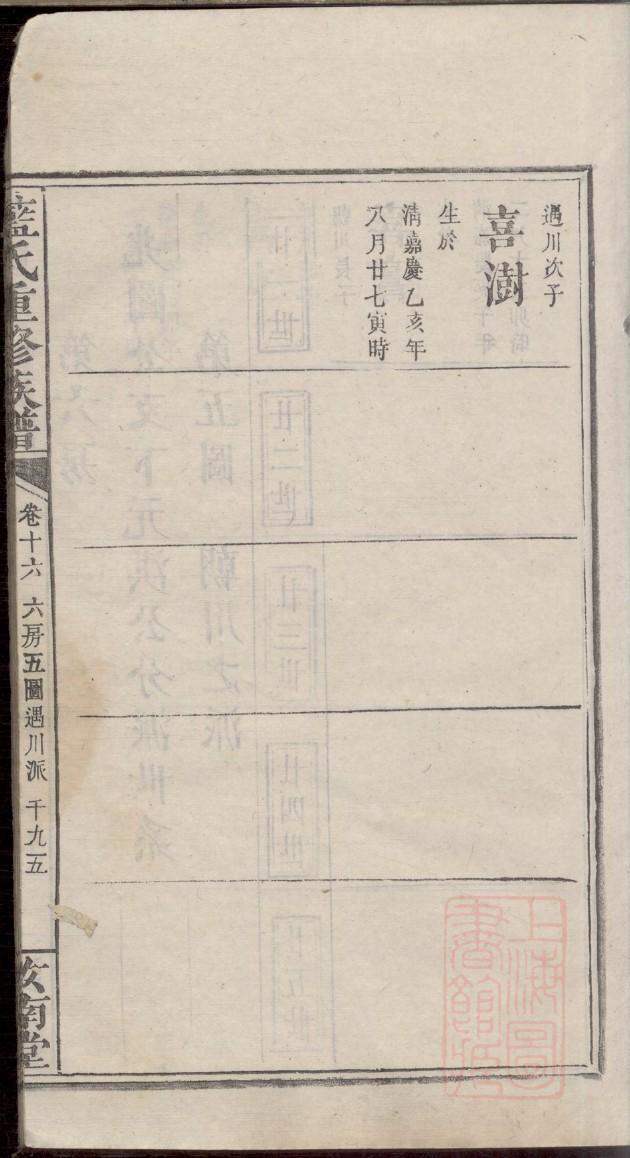 遇川次子
喜澍
生於
清嘉慶乙亥年
八月廿七寅時
藍氏重修族譜
卷十六 六房五圖遇川派 千九五
汝南堂
上海圖
書館藏